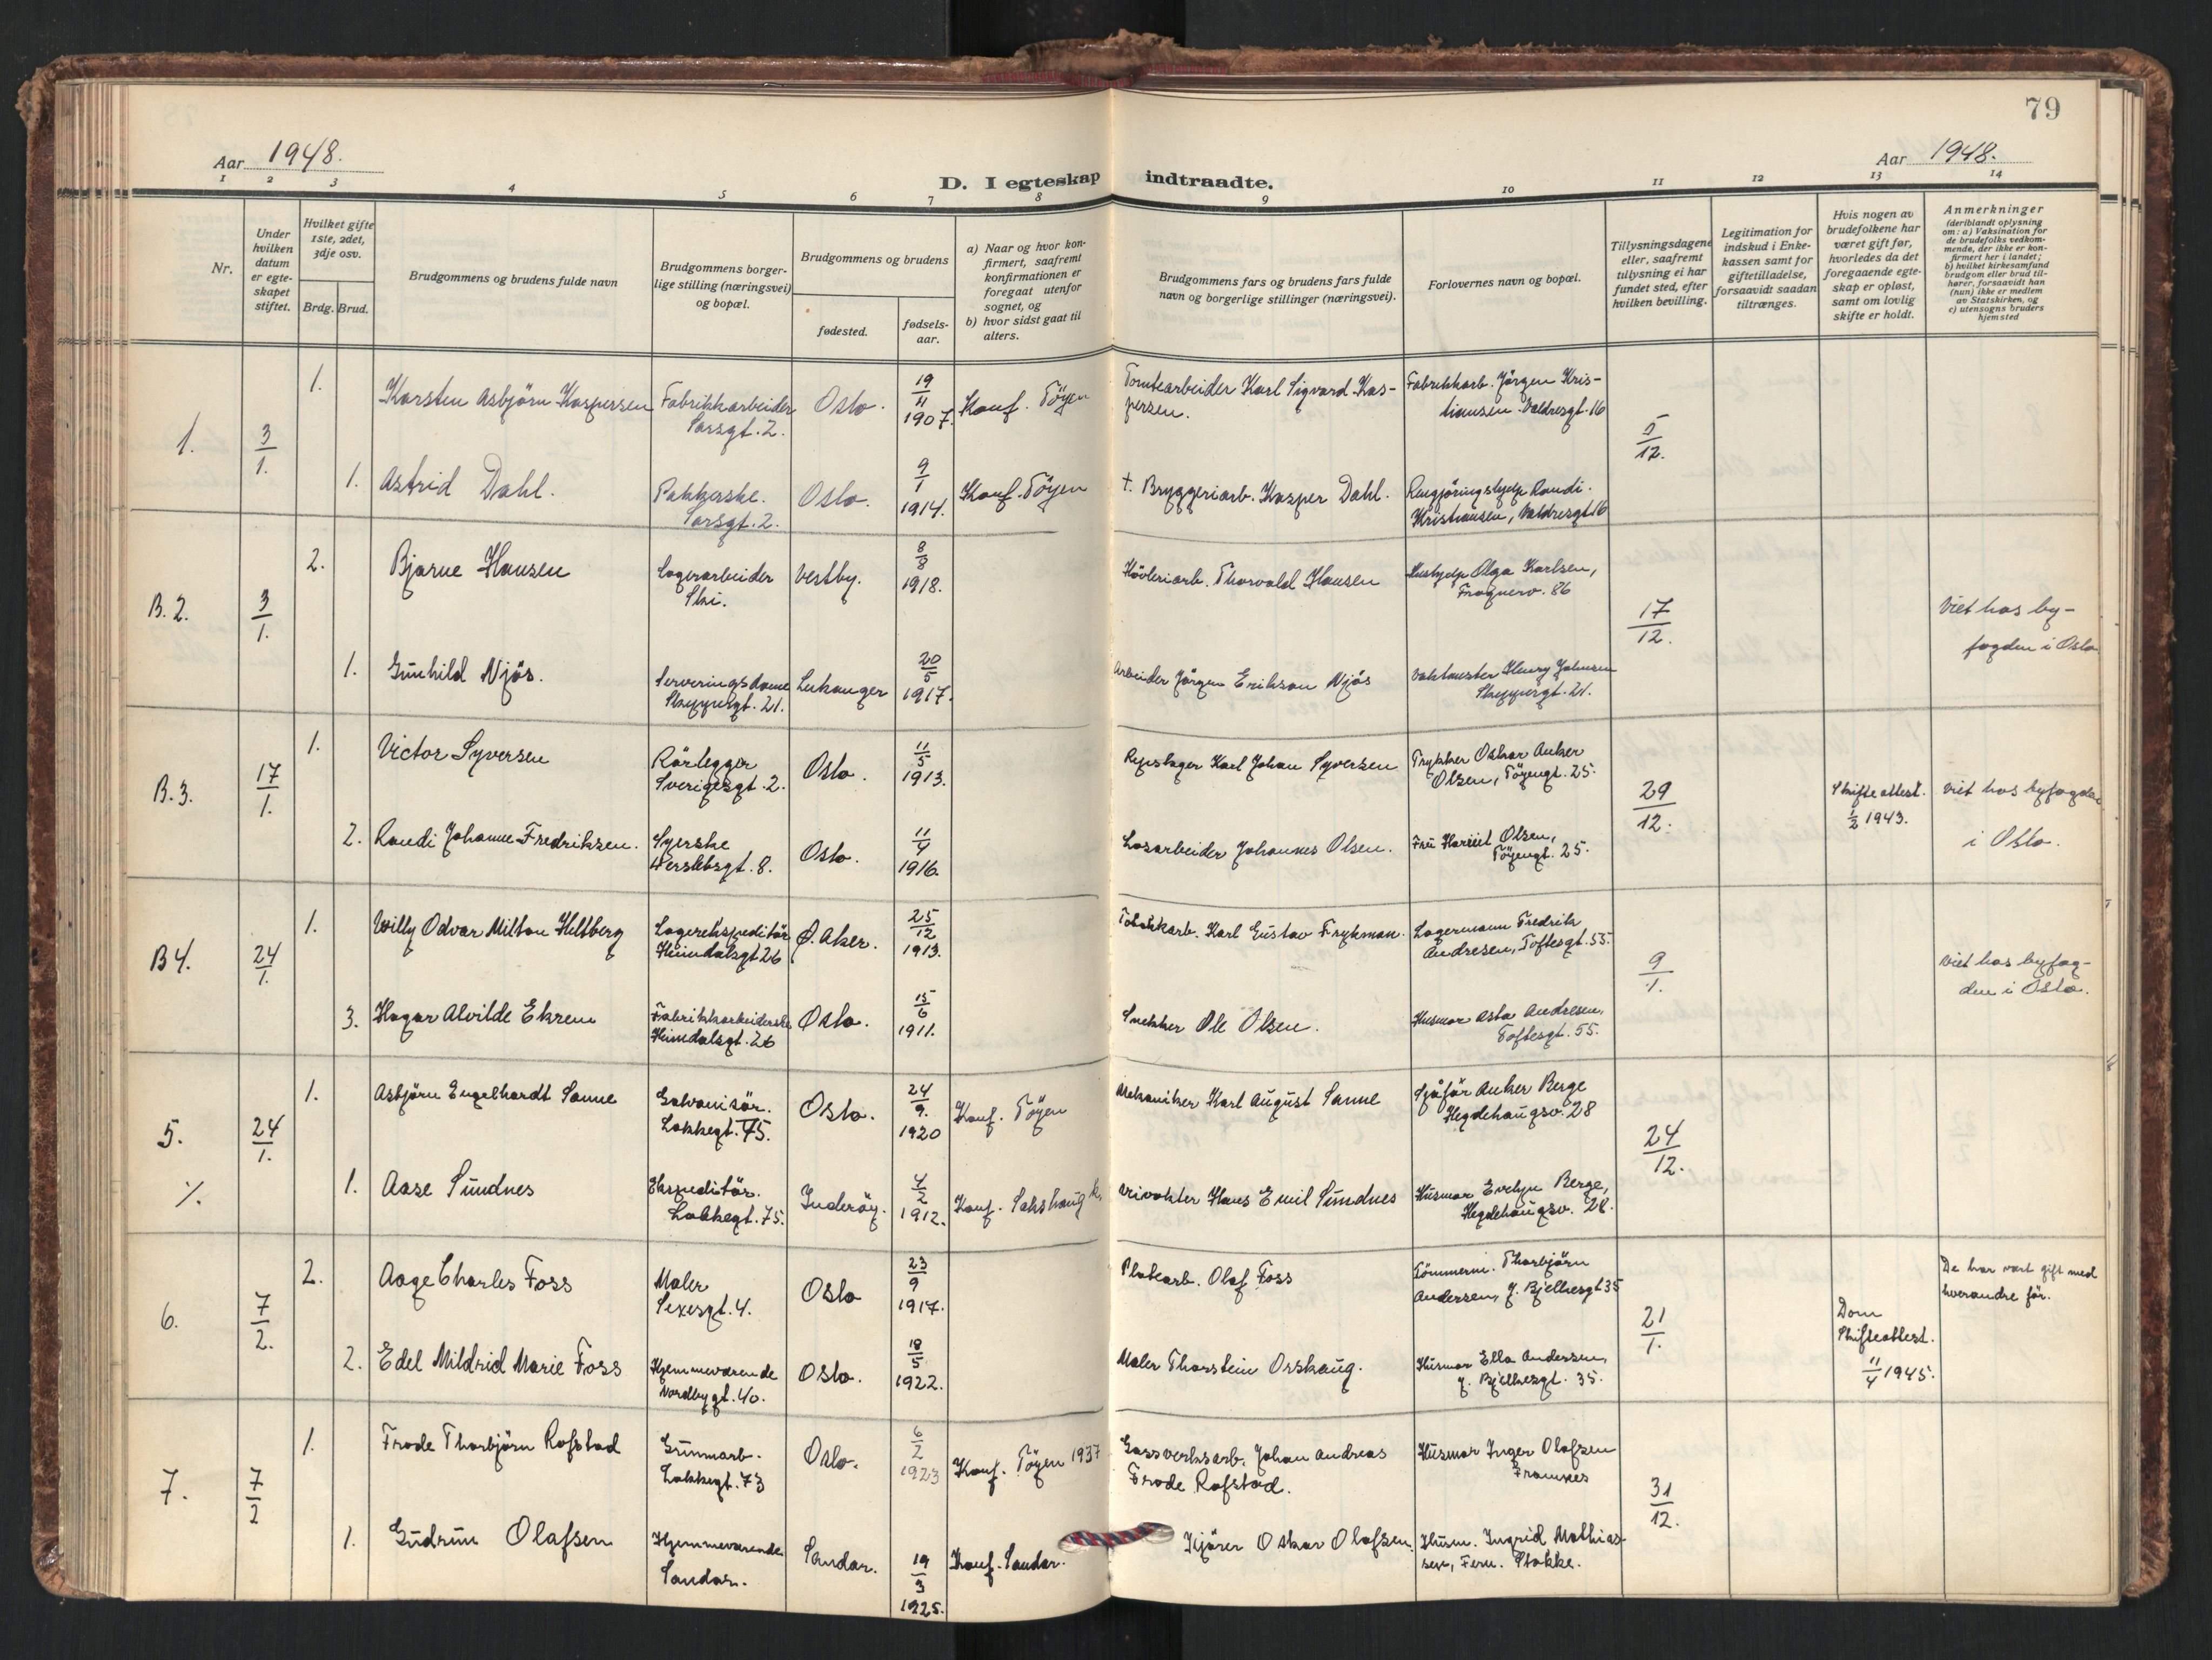 79
Aar 1948.
D. I egteskap indtraadte.
Aar 1948.
1 2 3 4 5 6 7 8 9 10 11 12 13 14
Nr.
Under hvilken datum er egteskapet stiftet.
Hvilket gifte 1ste, 2det, 3dje osv.
Brdg. Brud.
Brudgommens og brudens fulde navn
Brudgommens borgerlige stilling (næringsvei) og bopæl.
Brudgommens og brudens
fødested.
fødselsaar.
a) Naar og hvor konfirmert, saafremt konfirmationen er foregaat utenfor sognet, og
b) hvor sidst gaat til alters.
Brudgommens fars og brudens fars fulde navn og borgerlige stillinger (næringsvei).
Forlovernes navn og bopæl.
Tillysningsdagene eller, saafremt tillysning ei har fundet sted, efter hvilken bevilling.
Legitimation for indskud i Enkekassen samt for giftetilladelse, forsaavidt saadan tiltrænges.
Hvis nogen av brudefolkene har været gift før, hvorledes da det foregaaende egteskap er opløst, samt om lovlig skifte er holdt.
Anmerkninger
(deriblandt oplysning om: a) Vaksination for de brudefolks vedkommende, der ikke er konfirmert her i landet; b) hvilket kirkesamfund brudgom eller brud tilhører, forsaavidt han (hun) ikke er medlem av Statskirken, og c) utensogns bruders hjemsted
1. 3/1. 1. Karsten Asbjörn Kaspersen Fabrikkarbeider Sarsgt. 2. Oslo. 19/11 1907. Konf. Töyen Tomtearbeider Karl Sigvard Kaspersen. Fabrikkarb. Jörgen Kristiansen Valdresgt. 16 5/12.
1. Astrid Dahl. Pakkerske. Sarsgt. 2. Oslo. 9/1 1914. Konf. Töyen † Bryggeriarb. Kasper Dahl. Rengjöringshjelp Randi Kristiansen, Valdresgt 16
B. 2. 3/1. 2. Bjarne Hansen Lagerarbeider Ski. Vestby. 8/8 1918. Hövleriarb. Thorvald Hansen Hushjelp Olga Karlsen, Frognerv. 86 17/12. Viet hos byfogden i Oslo
1. Gunhild Njös. Serveringsdame Skippergt. 21. Leikanger 20/5 1917. Arbeider Jörgen Erikson Njös Vaktmester Henry Johnsen Skippergt. 21.
B. 3. 17/1. 1. Victor Syversen Rörlegger Sverigesgt. 2. Oslo. 11/5 1913. Repslager Karl Johan Syversen Trykker Oskar Anker Olsen, Töyengt. 25. 29/12. Skifteattest. 1/2 1943. Viet hos byfogden i Oslo.
2. Randi Johanne Fredriksen. Syerske Herslebsgt. 8. Oslo. 11/4 1916. Losarbeider Johannes Olsen. Fru Harriet Olsen, Töyengt. 25.
B 4. 24/1. 1. Willy Odvar Milton Heltberg Lagerekspeditör Heimdalsgt 26 Ö. Aker. 25/12 1913. Tobakkarb. Karl Gustav Frykman. Lagermann Fredrik Andresen, Toftesgt. 55. 9/1. Viet hos byfogden i Oslo.
3. Hagar Alvilde Ekrem Fabrikkarbeiderske Heimdalsgt. 26 Oslo. 15/6 1911. Snekker Ole Olsen. Husmor Asta Andresen, Toftesgt. 55.
5. 24/1. 1. Asbjörn Engelhardt Sanne Galvanisör. Lakkegt. 75. Oslo. 24/9. 1920 Konf. Töyen Mekaniker Karl August Sanne Sjåför Anker Berge Hegdehaugsv. 28 24/12.
1. Aase Sundnes Ekspeditör. Lakkegt. 75. Inderöy. 4/2 1912. Konf. Sakshaug k. Vrivakter Hans Emil Sundnes Husmor Evelyn Berge, Hegdehaugsv. 28.
6. 7/2. 2. Aage Charles Foss Maler Sexesgt. 4. Oslo 23/9 1917. Platearb. Olaf Foss Tömmerm. Thorbjörn Andersen, J. Bjelkesgt 35 21/1. Dom Skifteattest. 11/4 1945. De har vært gift med hverandre för.
2. Edel Mildrid Marie Foss Hjemmeværende Nordbygt. 40. Oslo. 18/5 1922. Maler Thorstein Orskaug. Husmor Ella Andersen, J. Bjelkesgt. 35.
7. 7/2 1. Frode Thorbjörn Rofstad Gummarb. Lakkegt. 73 Oslo. 6/2 1923 Konf. Töyen 1937 Gassverksarb. Johan Andreas Frode Rofstad. Husmor Inger Olafsen Framnes 31/12.
1. Gudrun Olafsen Hjemmeværende Sandar. Sandar. 19/3 1925. Konf. Sandar. Kjörer Oskar Olafsen. Husm. Ingrid Mathiassen, Fem. Stokke.